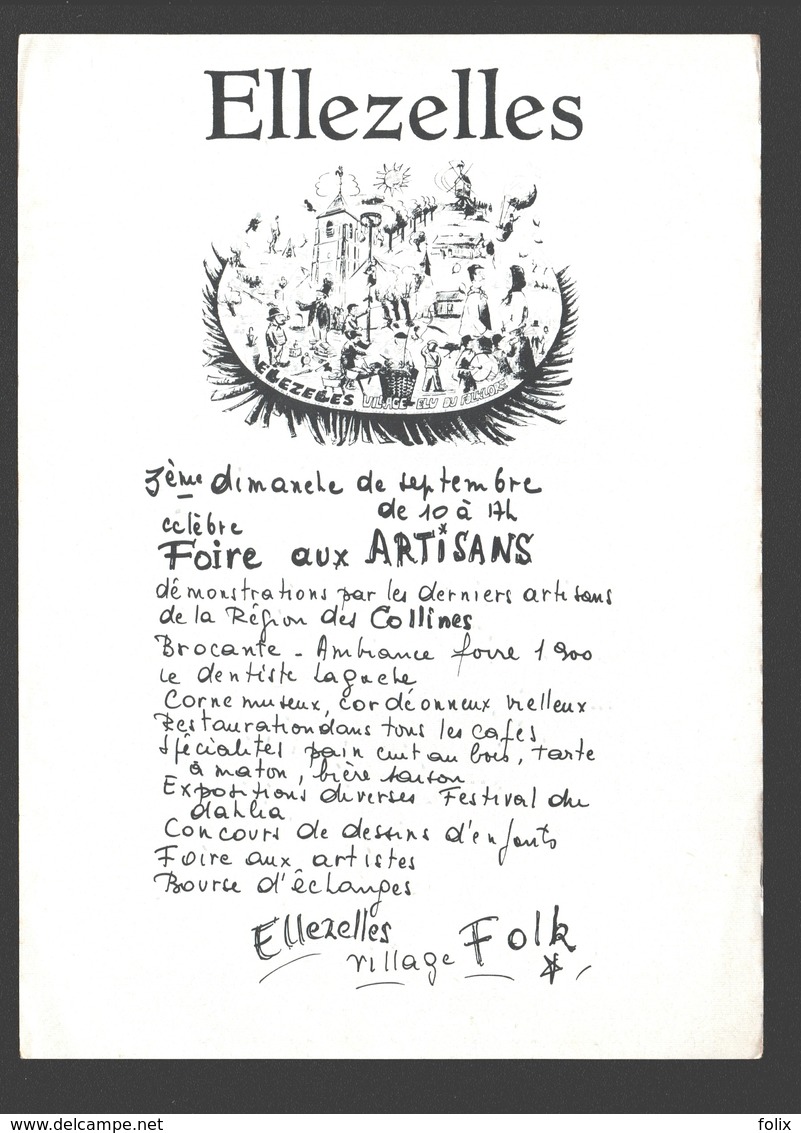 Ellezelles
ELLEZELLES LE VILLAGE ELU DU FOLKLORE
3ème dimanche de septembre
de 10 à 17h
célèbre
Foire aux ARTiSANS
démonstrations par les derniers artisans
de la Région des Collines
Brocante - Ambiance foire 1900
le dentiste Lagache
Cornemuseux, cordéonneux vielleux
Restauration dans tous les cafés
Spécialités pain cuit au bois, tarte
à maton, bière saison
Expositions diverses Festival du
dahlia
Concours de dessins d'enfants
Foire aux artistes
Bourse d'échanges
Ellezelles
village Folk
www.delcampe.net
felix